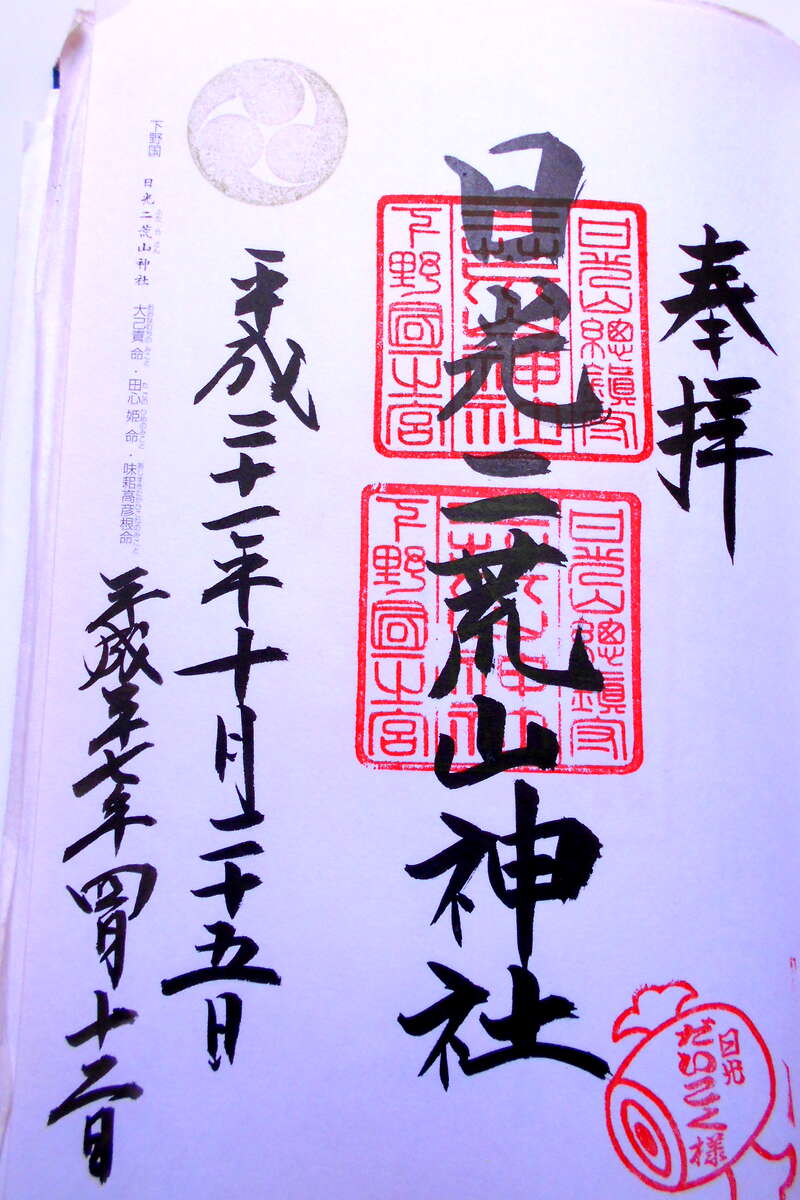 奉拝
日光山總鎮守
二荒山神社
下野國一之宮
日光二荒山神社
日光山總鎮守
二荒山神社
下野國一之宮
平成二十一年十月二十五日
平成二十七年四月十二日
下野国 日光二荒山神社 大己貴命・田心姫命・味耜高彦根命
日光
だいこく様